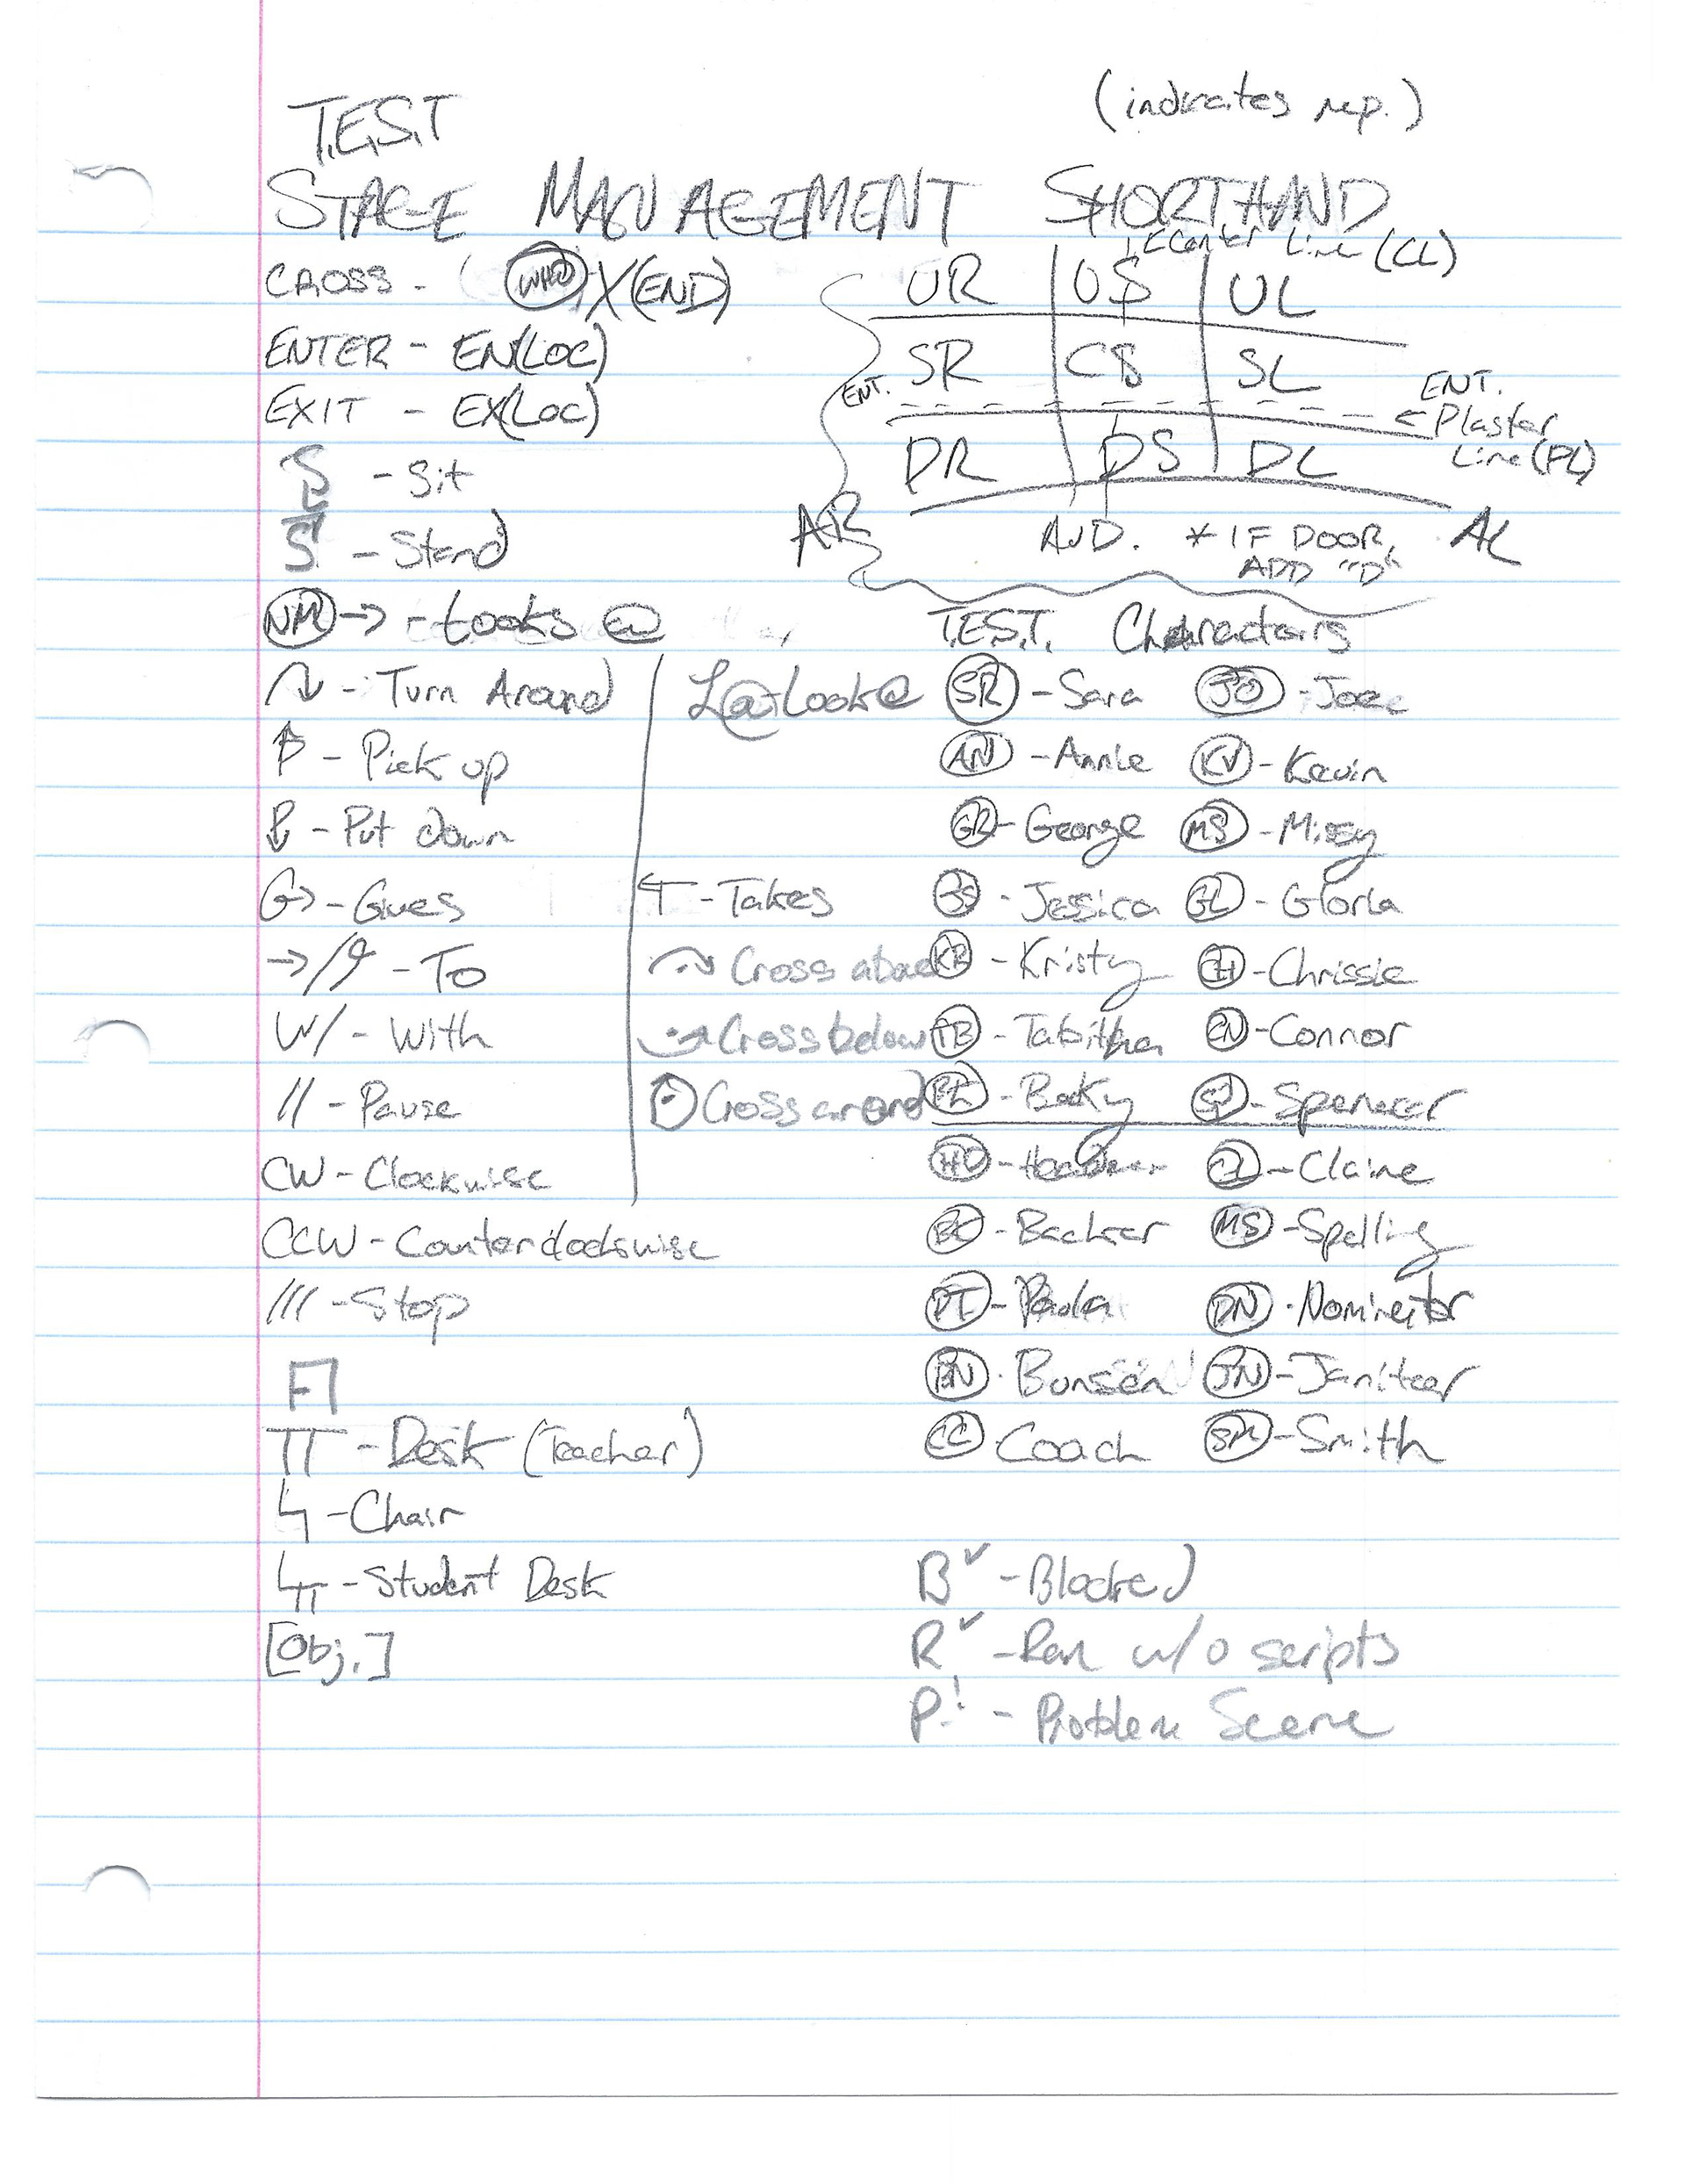 T.E.S.T
(indicates rep.)
STAGE MANAGEMENT SHORTHAND
CROSS - (WHO) X (END)
ENTER - EN(LOC)
EXIT - EX(LOC)
S - Sit
S - Stand
NM → - Looks @
Turn Around
P - Pick up
P - Put down
G> - Gives
→/ - To
W/ - With
// - Pause
CW - Clockwise
CCW - Counterclockwise
/// - Stop
TT - Desk (Teacher)
- Chair
- Student Desk
[Obj.]
L@ - Look@
T - Takes
Cross above
Cross below
Cross around
← Center Line (CL)
UR US UL
SR CS SL
ENT. ENT.
← Plaster Line (PL)
DR DS DL
AR AUD. AL
* IF DOOR,
ADD "D"
T.E.S.T. Characters
SR - Sara JO - Joe
AN - Annie KV - Kevin
GR - George MS - Missy
JS - Jessica GL - Gloria
KR - Kristy CH - Chrissie
TB - Tabitha CN - Connor
BK - Becky SP - Spenser
CL - Claire
BC - MS - Spelling
PT - Paula DN - Nominator
BN - Bunsen JN - Janitor
CC - Coach SM - Smith
B✓ - Blocked
R✓ - Ran w/o scripts
P! - Problem Scene